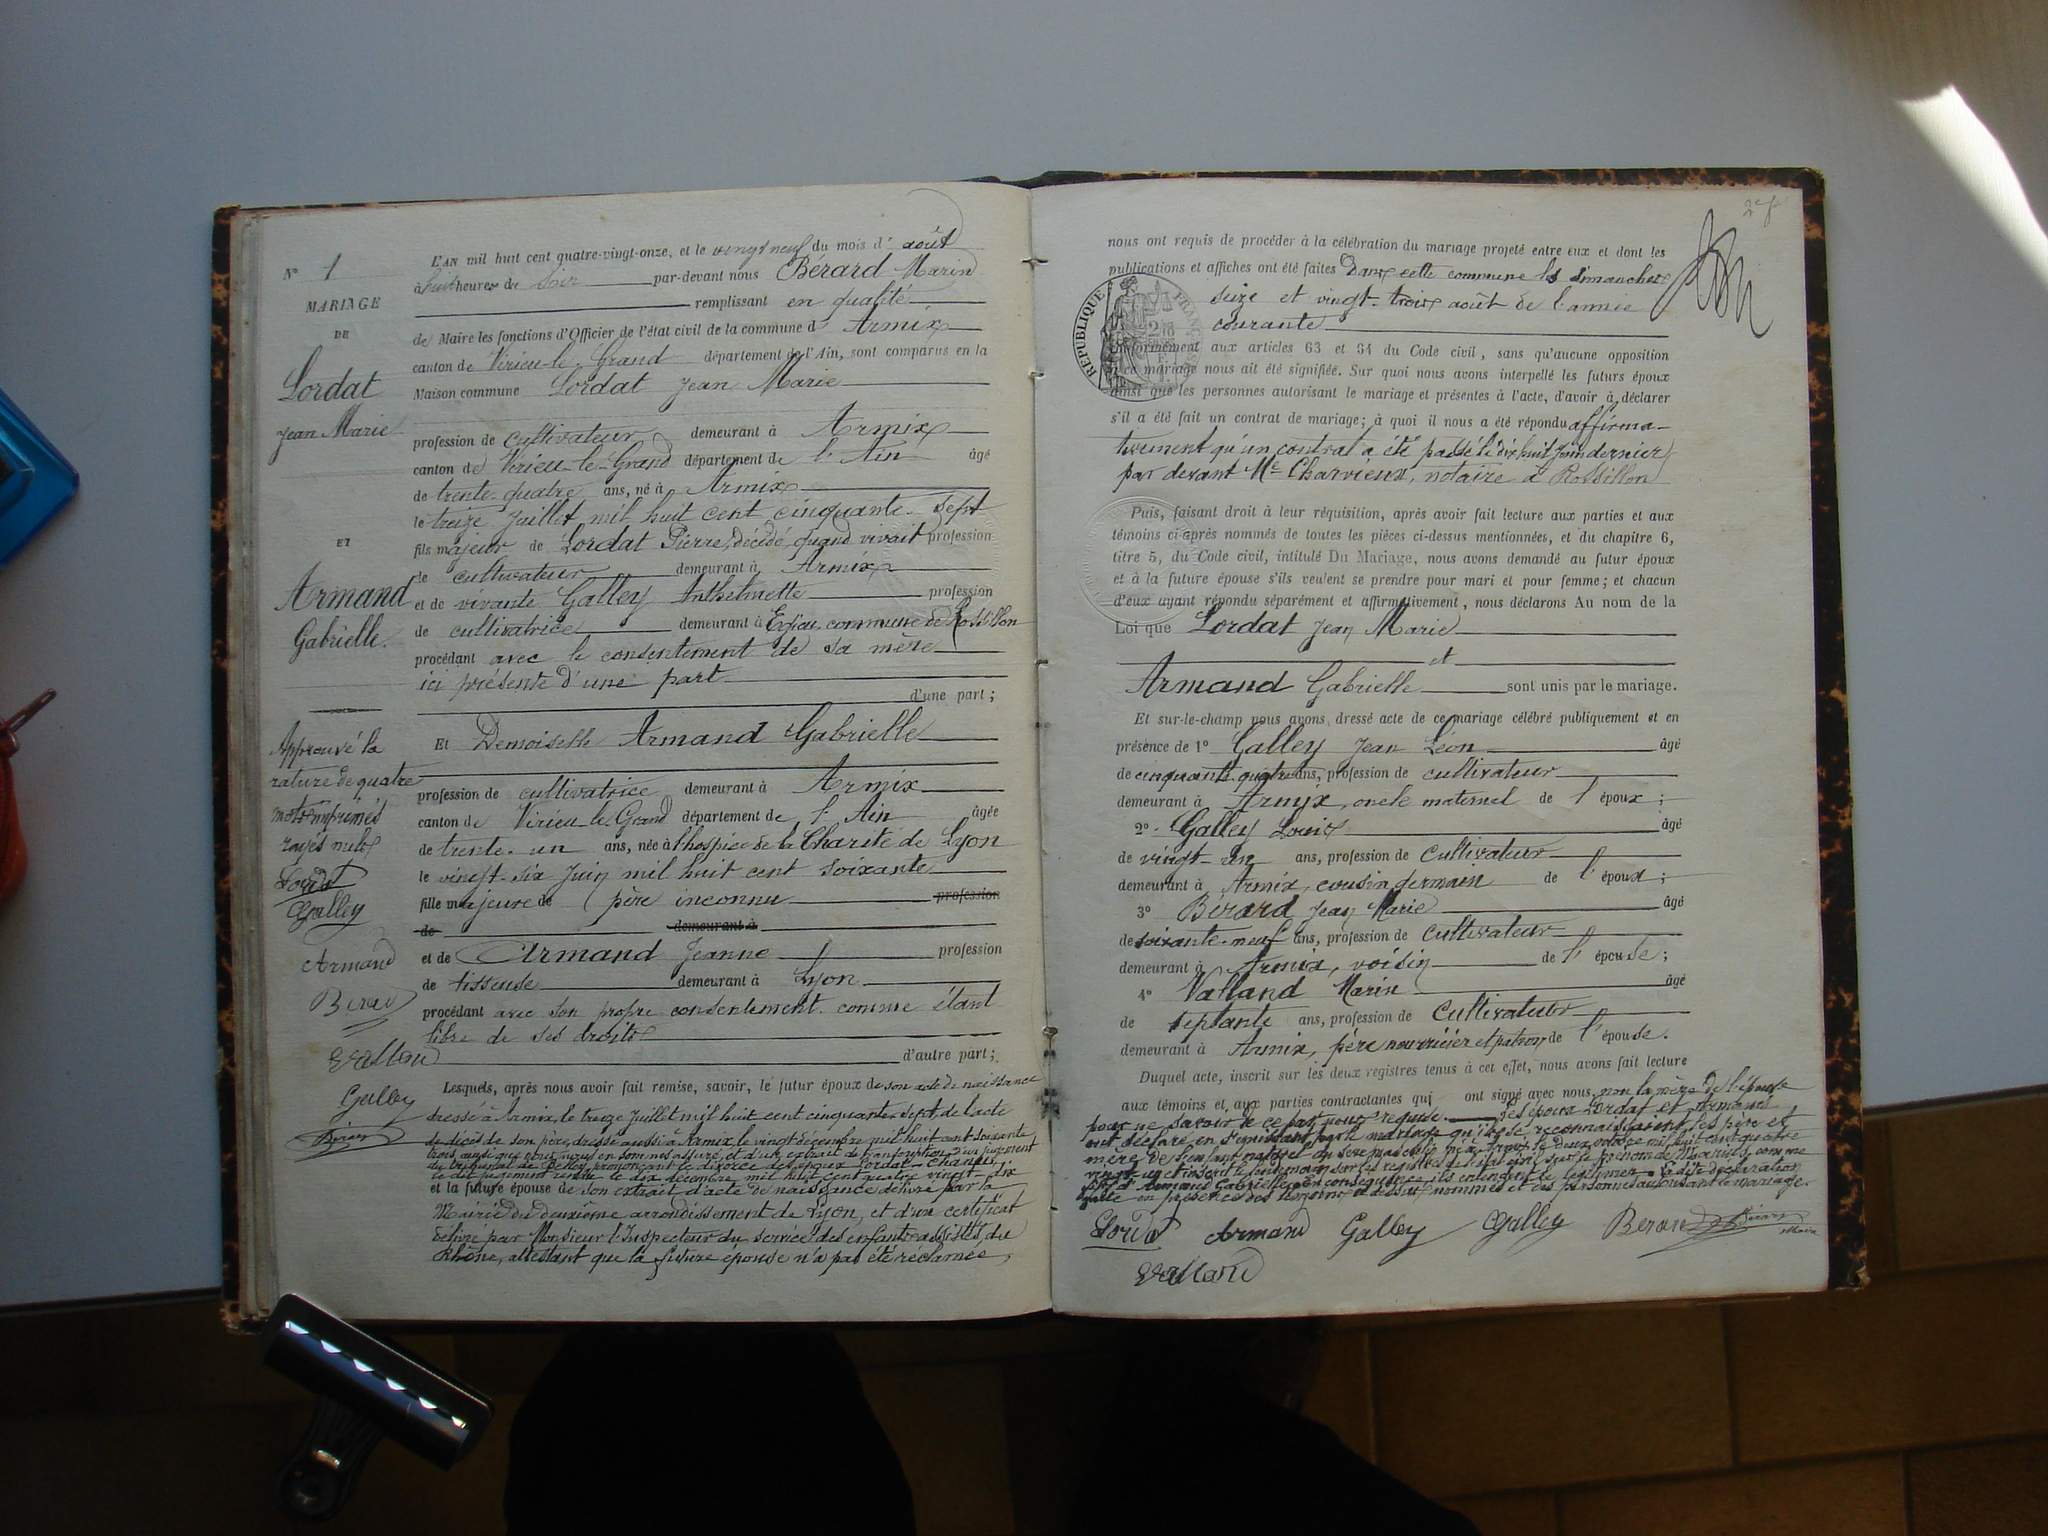 N° 1
MARIAGE
DE
Lordat
Jean Marie
ET
Armand
Gabrielle.
Approuvé la
rature de quatre
mots imprimés
rayés nuls
Lordat
Galley
Armand
Bérard
Valland
Galley
Bérard
L'AN mil huit cent quatre-vingt-onze, et le vingt neuf du mois d' août
à huit heures du soir par-devant nous Bérard Marin
remplissant en qualité
de Maire les fonctions d'Officier de l'état civil de la commune d' Armix
canton de Virieu-le-Grand département de l'Ain, sont comparus en la
Maison commune Lordat Jean Marie
profession de cultivateur demeurant à Armix
canton de Virieu-le-Grand département de l'Ain âgé
de trente-quatre ans, né à Armix
le treize Juillet mil huit cent cinquante-sept
fils majeur de Lordat Pierre, décédé, quand vivait profession
de cultivateur demeurant à Armix
et de vivante Galley Anthelmette profession
de cultivatrice demeurant à commune de Rossillon
procédant avec le consentement de sa mère
ici présente d'une part
d'une part ;
Et Demoiselle Armand Gabrielle
profession de cultivatrice demeurant à Armix
canton de Virieu-le-Grand département de l'Ain âgée
de trente-un ans, née à l'hospice de la Charité de Lyon
le vingt-six Juin mil huit cent soixante
fille majeure de père inconnu profession
de demeurant à
et de Armand Jeanne profession
de tisseuse demeurant à Lyon
procédant avec son propre consentement comme étant
libre de ses droits
d'autre part ;
Lesquels, après nous avoir fait remise, savoir, le futur époux de son acte de naissance
dressé à Armix, le treize Juillet mil huit cent cinquante-sept, de l'acte
de décès de son père, dressé aussi à Armix, le vingt décembre mil huit cent soixante
trois, ainsi que nous nous en sommes assuré, et d'un extrait de transcription d'un jugement
du tribunal de Belley, prononçant le divorce des époux Lordat
le dit jugement rendu le dix décembre mil huit cent quatre vingt dix
et la future épouse de son extrait d'acte de naissance délivré par la
Mairie du deuxième arrondissement de Lyon, et d'un certificat
délivré par Monsieur l'Inspecteur du service des enfants assistés du
Rhône, attestant que la future épouse n'a pas été réclamée,
nous ont requis de procéder à la célébration du mariage projeté entre eux et dont les
publications et affiches ont été faites dans cette commune les dimanches
seize et vingt-trois août de l'année
courante
RÉPUBLIQUE FRANÇAISE
conformément aux articles 63 et 64 du Code civil, sans qu'aucune opposition
à ce mariage nous ait été signifiée. Sur quoi nous avons interpellé les futurs époux
ainsi que les personnes autorisant le mariage et présentes à l'acte, d'avoir à déclarer
s'il a été fait un contrat de mariage; à quoi il nous a été répondu affirma-
tivement qu'un contrat a été passé le dix huit Juin dernier
par devant Me Charvieux, notaire à Rossillon
Puis, faisant droit à leur réquisition, après avoir fait lecture aux parties et aux
témoins ci-après nommés de toutes les pièces ci-dessus mentionnées, et du chapitre 6,
titre 5, du Code civil, intitulé Du Mariage, nous avons demandé au futur époux
et à la future épouse s'ils veulent se prendre pour mari et pour femme; et chacun
d'eux ayant répondu séparément et affirmativement, nous déclarons Au nom de la
Loi que Lordat Jean Marie
et
Armand Gabrielle sont unis par le mariage.
Et sur-le-champ nous avons dressé acte de ce mariage célébré publiquement et en
présence de 1° Galley Jean Léon âgé
de cinquante-quatre ans, profession de cultivateur
demeurant à Armix, oncle maternel de l'époux ;
2° Galley Louis âgé
de vingt-un ans, profession de cultivateur
demeurant à Armix, cousin germain de l'époux ;
3° Bérard Jean Marie âgé
de soixante-neuf ans, profession de cultivateur
demeurant à Armix, voisin de l'épouse ;
4° Valland Marin âgé
de septante ans, profession de cultivateur
demeurant à Armix, père nourricier et patron de l'épouse.
Duquel acte, inscrit sur les deux registres tenus à cet effet, nous avons fait lecture
aux témoins et aux parties contractantes qui ont signé avec nous, non la mère de l'époux
pour ne savoir de ce par nous requise. Les époux Lordat et Armand
ont déclaré, en s'unissant par le mariage qu'ils se reconnaissaient les père et
mère de l'enfant naturel du sexe masculin né à Armix, le deux octobre mil huit cent quatre
vingt-un et inscrit le lendemain sur les registres de l'état civil sous le prénom de Marius, comme
fils d'Armand Gabrielle, et en conséquence, ils entendent le légitimer. La dite déclaration
faite en présence des témoins ci-dessus nommés et des personnes autorisant le mariage.
Lordat Armand Galley Galley Bérard Bérard Maire
Valland